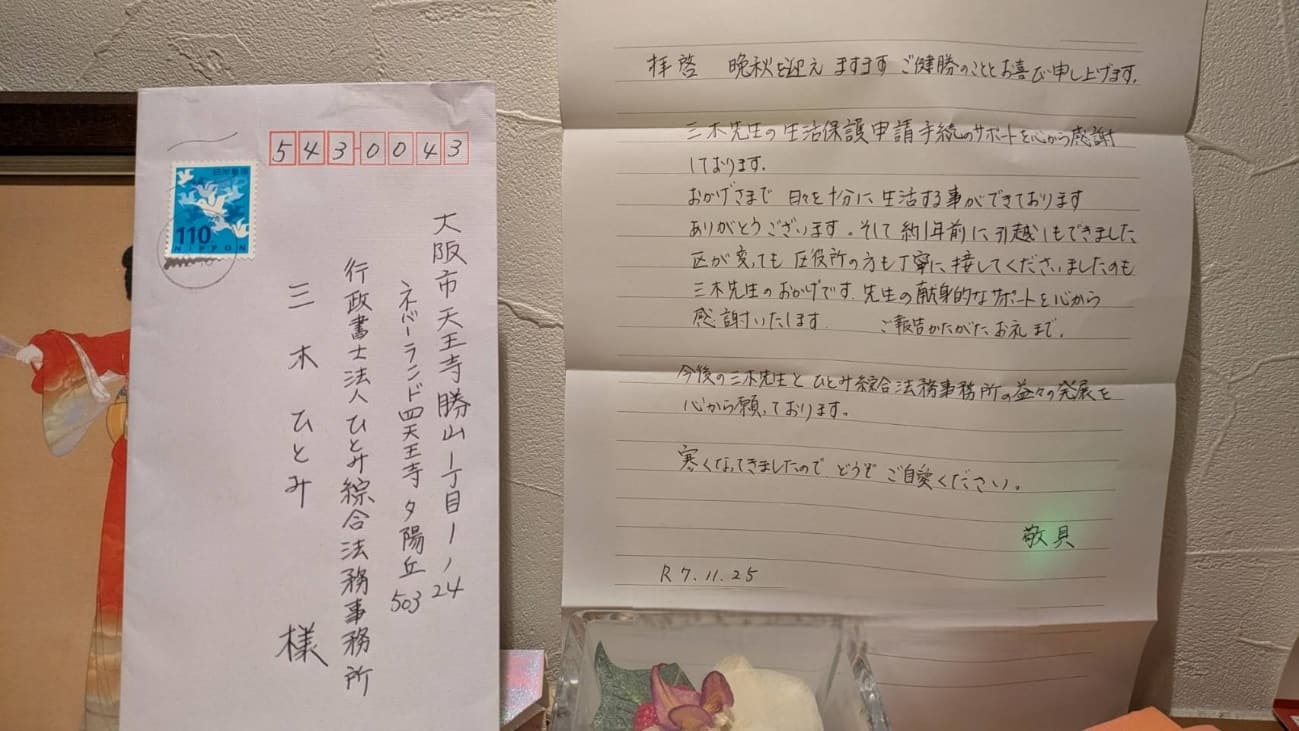 543-0043
日本郵便
110
NIPPON
大阪市天王寺勝山1丁目1ノ24
ネバーランド四天王寺夕陽丘503
行政書士法人ひとみ綜合法務事務所
三木ひとみ様
拝啓 晩秋を迎え ますます ご健勝のこととお喜び申し上げます。
三木先生の生活保護申請手続のサポートを心から感謝
しております。
おかげさまで 日々を十分に生活する事ができております
ありがとうございます。そして約1年前に引越しもできました
区が変っても 区役所の方も丁寧に接してくださいましたのも
三木先生のおかげです.先生の献身的なサポートを心から
感謝いたします. ご報告かたがたお礼まで。
今後の三木先生とひとみ綜合法務事務所の益々の発展を
心から願っております。
寒くなってきましたので どうぞ ご自愛ください。
敬具
R7.11.25